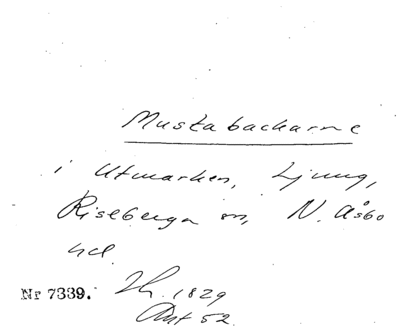 Muskabackarne
i Utmarken, Ljung,
Riseberga sn, N. Åsbo
hd.
Nr 7339. 1829
Ant 52